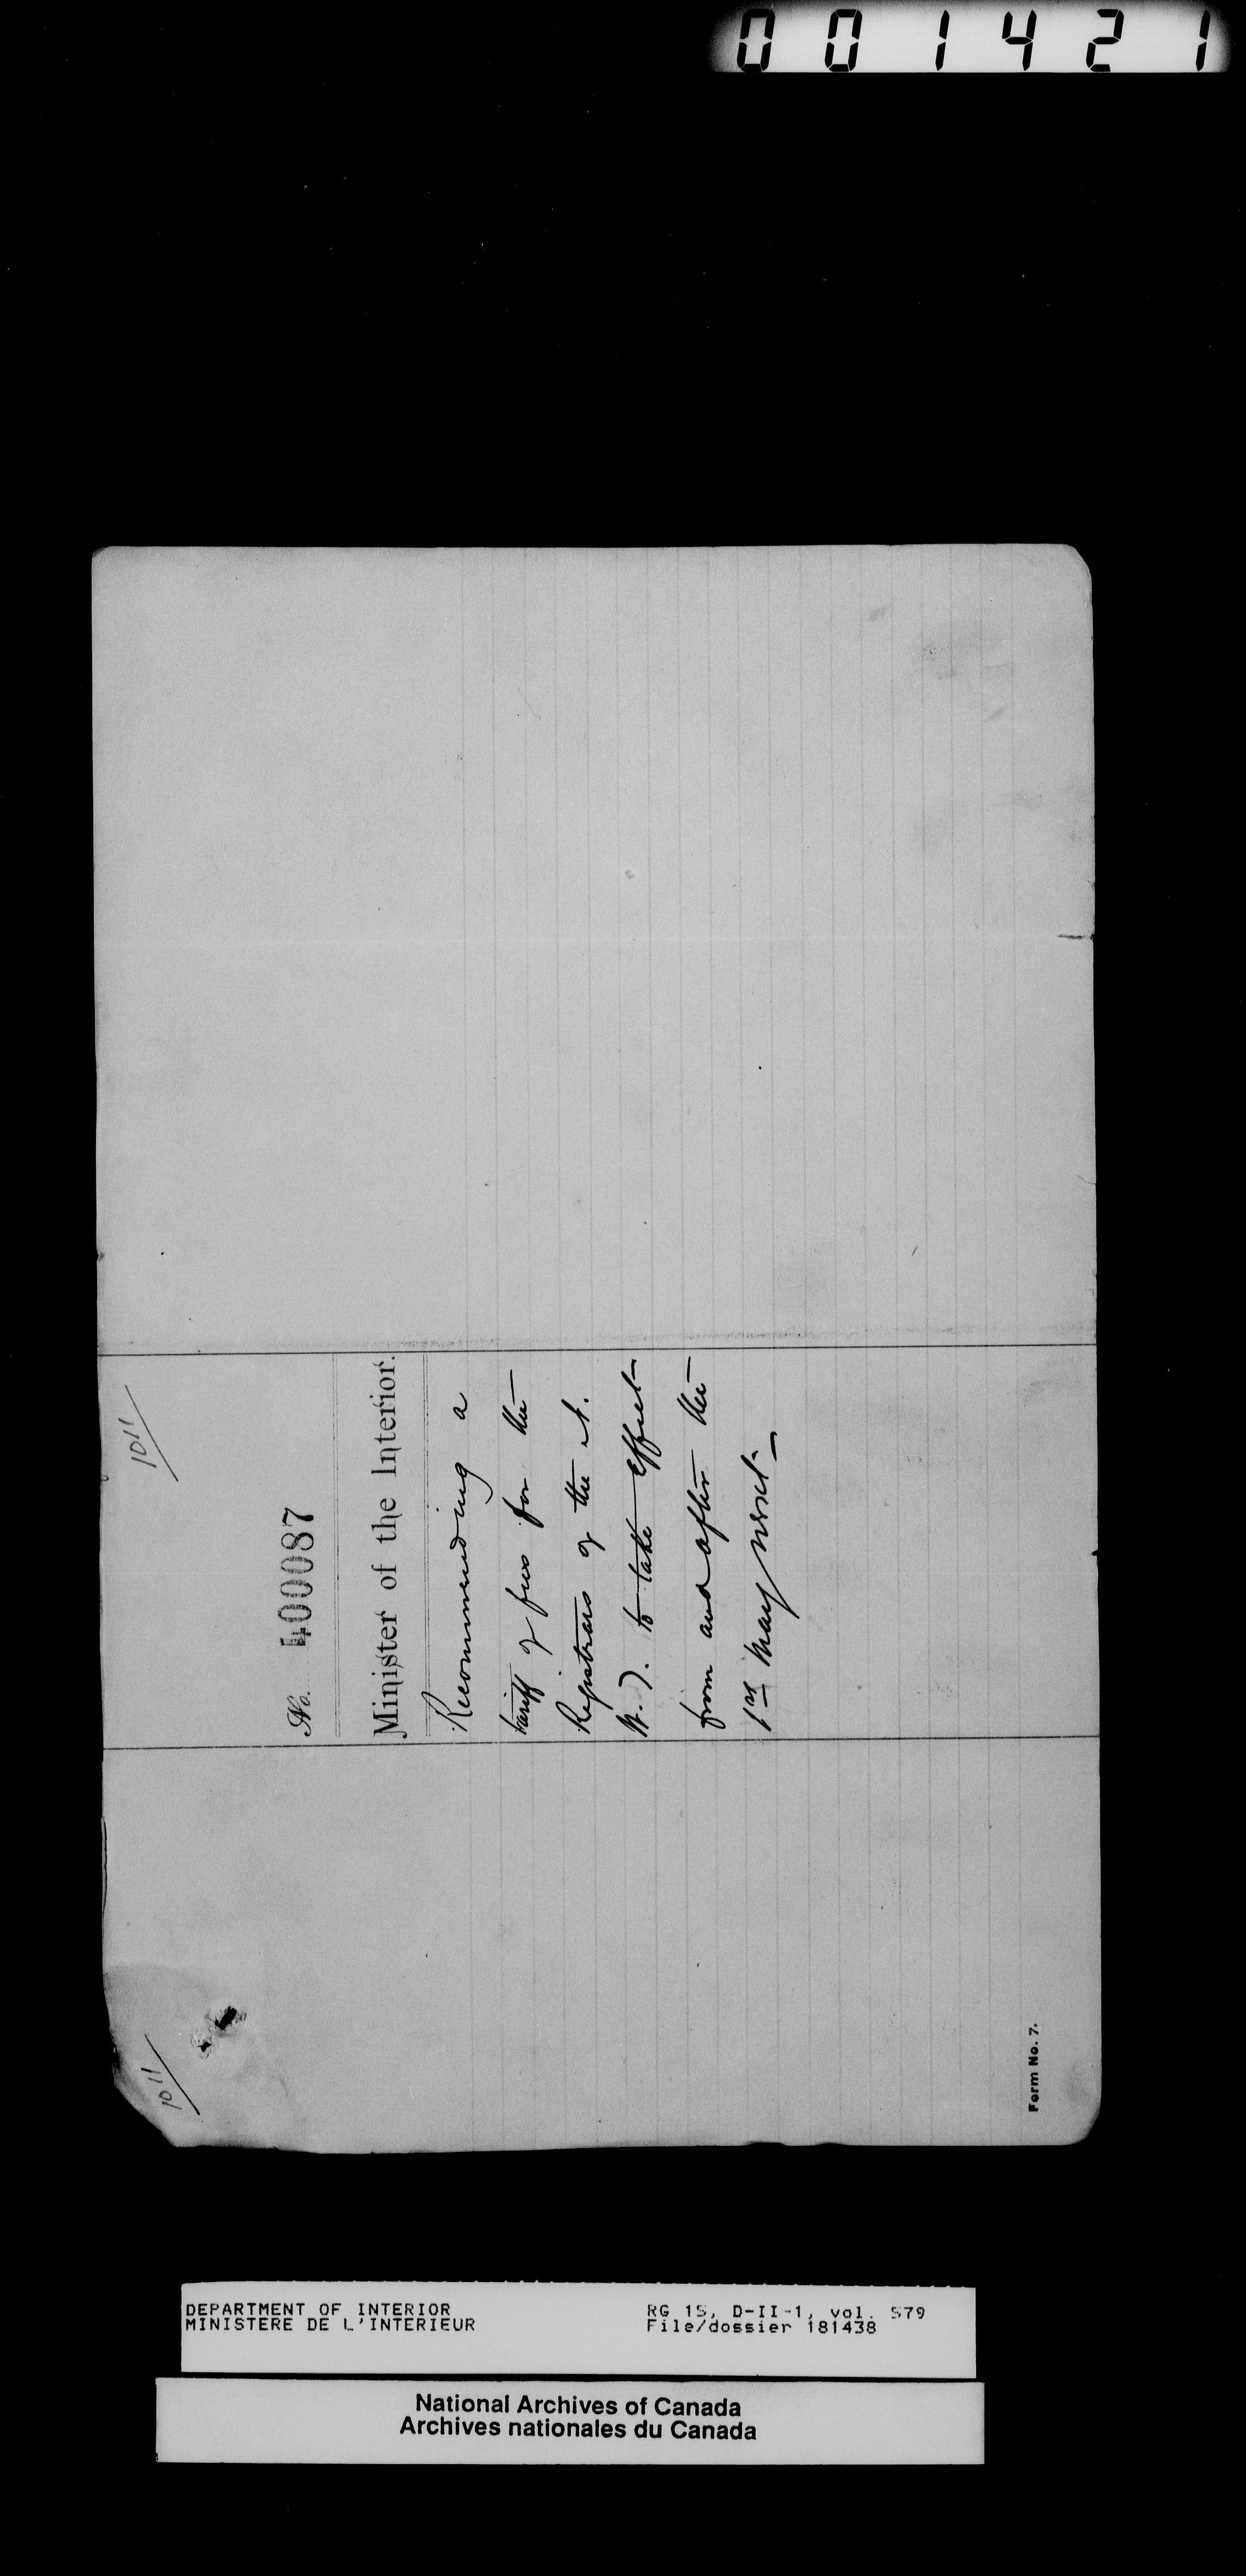 001421
1011
No. 400087
Minister of the Interior.
Recommending a
tariff of fees for the
Registrars of the N.
W. T. to take effect
from and after the
1st May next
1011
Form No. 7.
DEPARTMENT OF INTERIOR
MINISTERE DE L'INTERIEUR
RG 15, D-II-1, vol. 579
File/dossier 181438
National Archives of Canada
Archives nationales du Canada